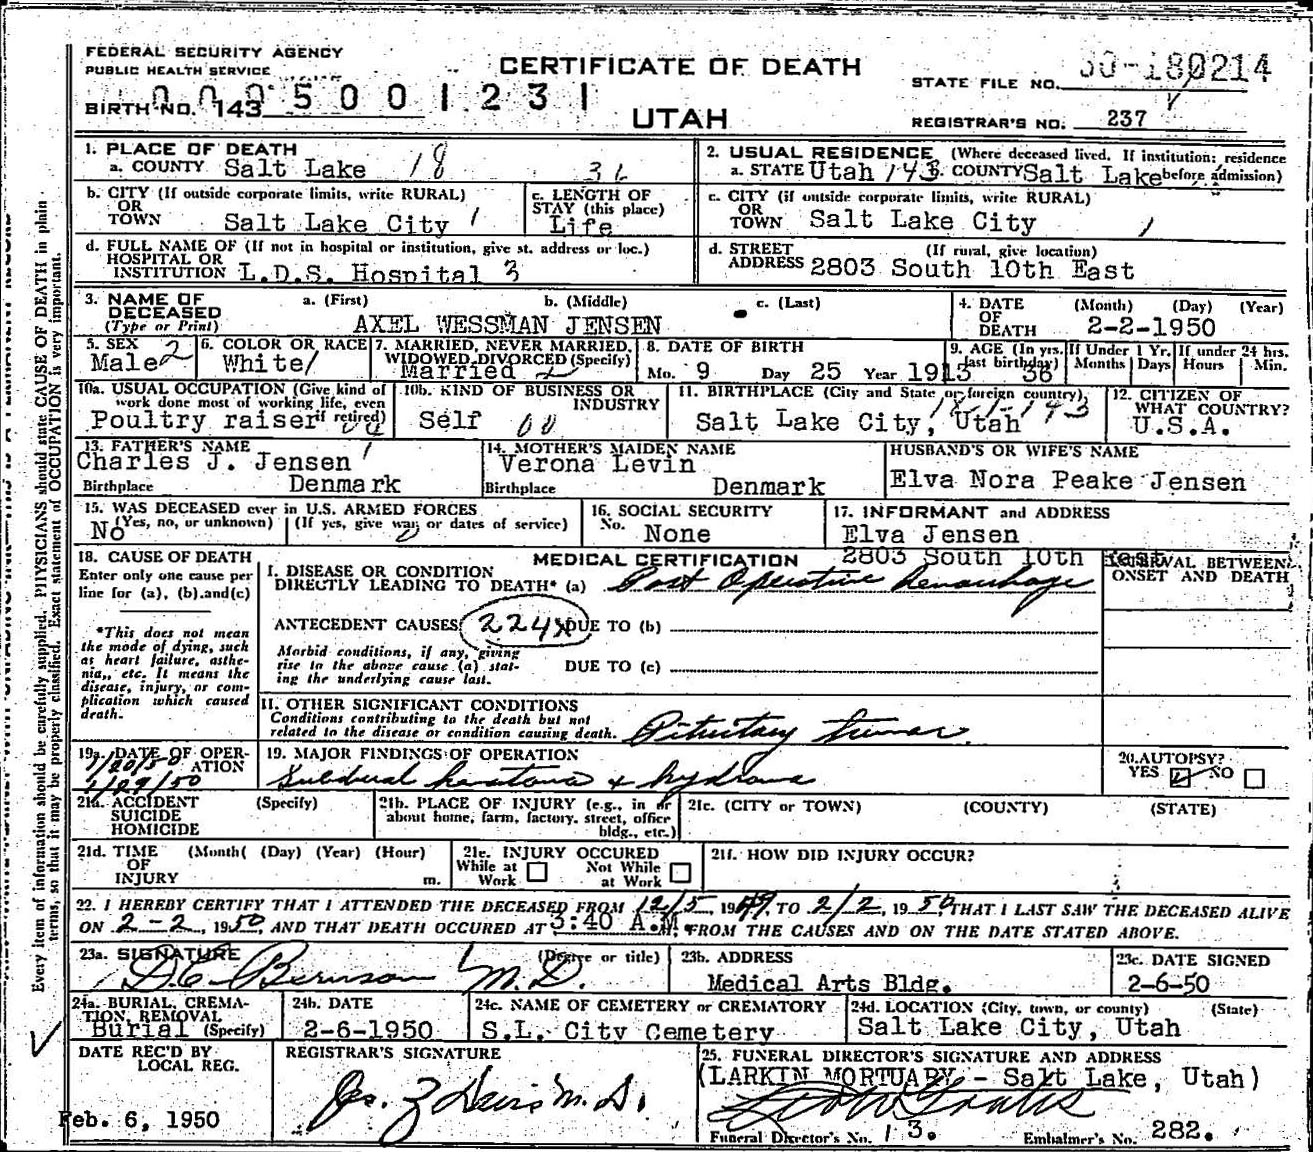 FEDERAL SECURITY AGENCY
PUBLIC HEALTH SERVICE
CERTIFICATE OF DEATH
UTAH
STATE FILE NO. 50-180214
BIRTH NO. 143
0095001231
REGISTRAR'S NO. 237
1. PLACE OF DEATH
a. COUNTY Salt Lake 18 36
2. USUAL RESIDENCE (Where deceased lived. If institution: residence before admission)
a. STATE Utah 143 COUNTY Salt Lake
b. CITY (If outside corporate limits, write RURAL)
OR
TOWN Salt Lake City 1
c. LENGTH OF
STAY (this place)
Life
c. CITY (if outside corporate limits, write RURAL)
OR
TOWN Salt Lake City 1
d. FULL NAME OF (If not in hospital or institution, give st. address or loc.)
HOSPITAL OR
INSTITUTION L.D.S. Hospital 3
d. STREET (If rural, give location)
ADDRESS 2803 South 10th East
3. NAME OF a. (First) b. (Middle) c. (Last)
DECEASED
(Type or Print) AXEL WESSMAN JENSEN
4. DATE (Month) (Day) (Year)
OF
DEATH 2-2-1950
5. SEX
Male 2
6. COLOR OR RACE
White/
7. MARRIED, NEVER MARRIED,
WIDOWED, DIVORCED (Specify)
Married 2
8. DATE OF BIRTH
Mo. 9 Day 25 Year 1913
9. AGE (In yrs. last birthday) 36
If Under 1 Yr.
Months Days
If under 24 hrs.
Hours Min.
10a. USUAL OCCUPATION (Give kind of
work done most of working life, even
if retired)
Poultry raiser
10b. KIND OF BUSINESS OR
INDUSTRY
Self
11. BIRTHPLACE (City and State or foreign country)
Salt Lake City, Utah
12. CITIZEN OF
WHAT COUNTRY?
U.S.A.
13. FATHER'S NAME
Charles J. Jensen
Birthplace Denmark
14. MOTHER'S MAIDEN NAME
Verona Levin
Birthplace Denmark
HUSBAND'S OR WIFE'S NAME
Elva Nora Peake Jensen
15. WAS DECEASED ever in U.S. ARMED FORCES
(Yes, no, or unknown) (If yes, give war or dates of service)
No 0
16. SOCIAL SECURITY
No. None
17. INFORMANT and ADDRESS
Elva Jensen
2803 South 10th East
18. CAUSE OF DEATH
Enter only one cause per
line for (a), (b).and(c)
*This does not mean
the mode of dying, such
as heart failure, asthe-
nia,, etc. It means the
disease, injury, or com-
plication which caused
death.
MEDICAL CERTIFICATION
INTERVAL BETWEEN
ONSET AND DEATH
I. DISEASE OR CONDITION
DIRECTLY LEADING TO DEATH* (a) Post Operative Hemorrhage
ANTECEDENT CAUSES 224x DUE TO (b)
Morbid conditions, if any, giving
rise to the above cause (a) stat-
ing the underlying cause last.
DUE TO (c)
II. OTHER SIGNIFICANT CONDITIONS
Conditions contributing to the death but not
related to the disease or condition causing death. Pituitary tumor
19a. DATE OF OPER-
ATION
1/20/50
1/29/50
19. MAJOR FINDINGS OF OPERATION
Subdural hematoma & hydroma
20. AUTOPSY?
YES NO
21a. ACCIDENT (Specify)
SUICIDE
HOMICIDE
21b. PLACE OF INJURY (e.g., in or
about home, farm, factory. street, office
bldg., etc.)
21c. (CITY or TOWN) (COUNTY) (STATE)
21d. TIME (Month( (Day) (Year) (Hour)
OF
INJURY m.
21e. INJURY OCCURED
While at Work Not While at Work
21f. HOW DID INJURY OCCUR?
22. I HEREBY CERTIFY THAT I ATTENDED THE DECEASED FROM 12/5, 1949, TO 2/2, 1950, THAT I LAST SAW THE DECEASED ALIVE
ON 2-2, 1950, AND THAT DEATH OCCURED AT 3:40 A.M. FROM THE CAUSES AND ON THE DATE STATED ABOVE.
23a. SIGNATURE (Degree or title)
M.D.
23b. ADDRESS
Medical Arts Bldg.
23c. DATE SIGNED
2-6-50
24a. BURIAL, CREMA-
TION, REMOVAL
Burial (Specify)
24b. DATE
2-6-1950
24c. NAME OF CEMETERY or CREMATORY
S.L. City Cemetery
24d. LOCATION (City, town, or county) (State)
Salt Lake City, Utah
DATE REC'D BY
LOCAL REG.
Feb. 6, 1950
REGISTRAR'S SIGNATURE
25. FUNERAL DIRECTOR'S SIGNATURE AND ADDRESS
(LARKIN MORTUARY - Salt Lake, Utah)
Funeral Director's No. 13. Embalmer's No. 282.
Every item of information should be carefully supplied. PHYSICIANS should state CAUSE OF DEATH in plain
terms, so that it may be properly classified. Exact statement of OCCUPATION is very important.